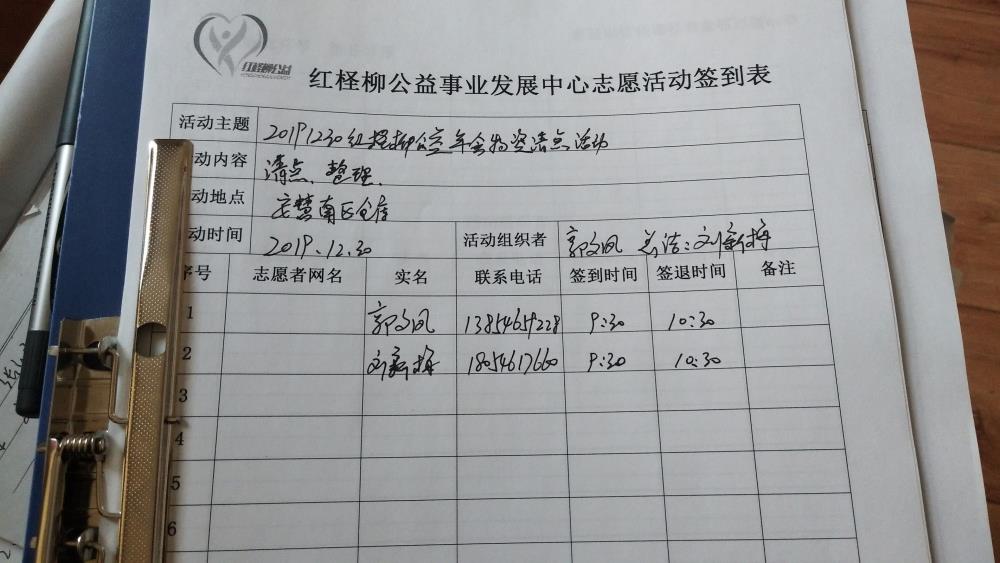 红柽柳公益
红柽柳公益事业发展中心志愿活动签到表
活动主题 20191230红柽柳公益年会物资清点活动
动内容 清点、整理.
动地点 安慧南区仓库
动时间 2019.12.30 活动组织者 郭文凤 总结:刘新梅
序号 志愿者网名 实名 联系电话 签到时间 签退时间 备注
1 郭文凤 13854659228 9:30 10:30
2 刘新梅 18054617660 9:30 10:30
3
4
5
6